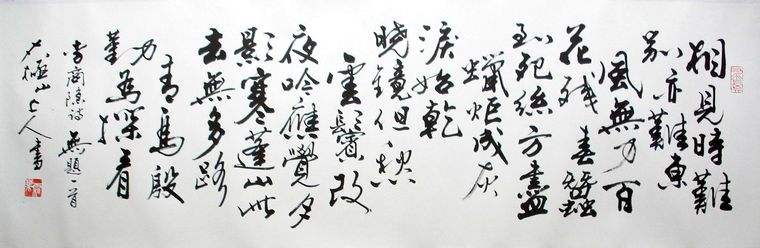 相見時難
別亦難東
風無力百
花殘春蠶
到死絲方盡
蠟炬成灰
淚始乾
曉鏡但愁
雲鬢改
夜吟應覺月
影寒蓬山此
去無多路
青鳥殷
勤為探看
李商隱詩無題一首
山上人書